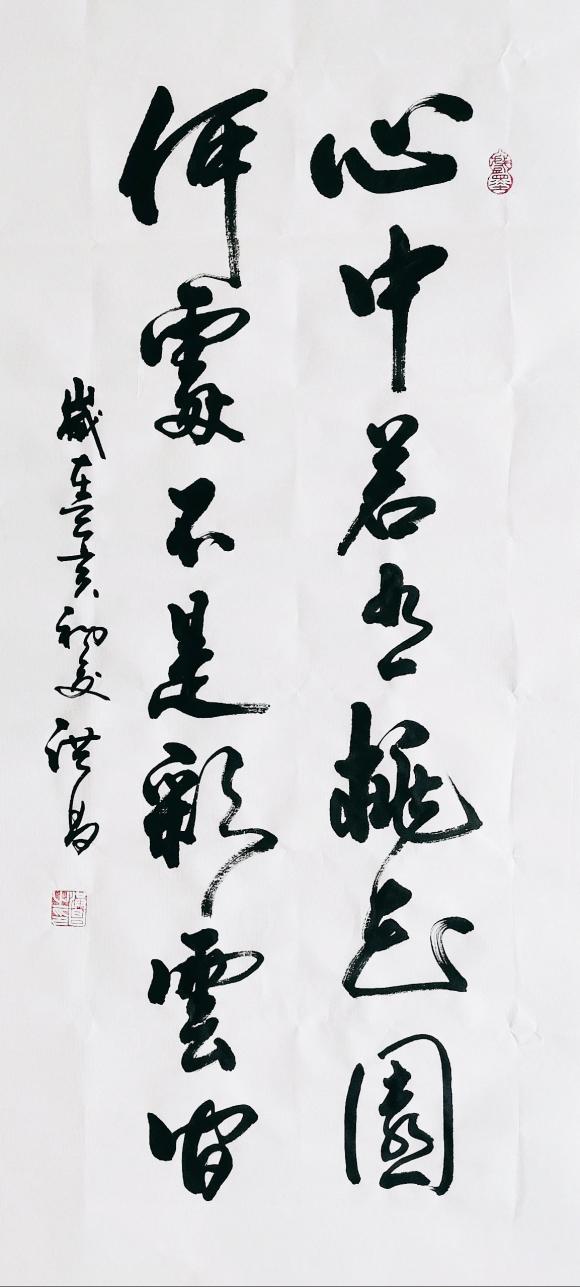 心中若有桃花園
何處不是彩雲間
歲在己亥初夏 洪昌